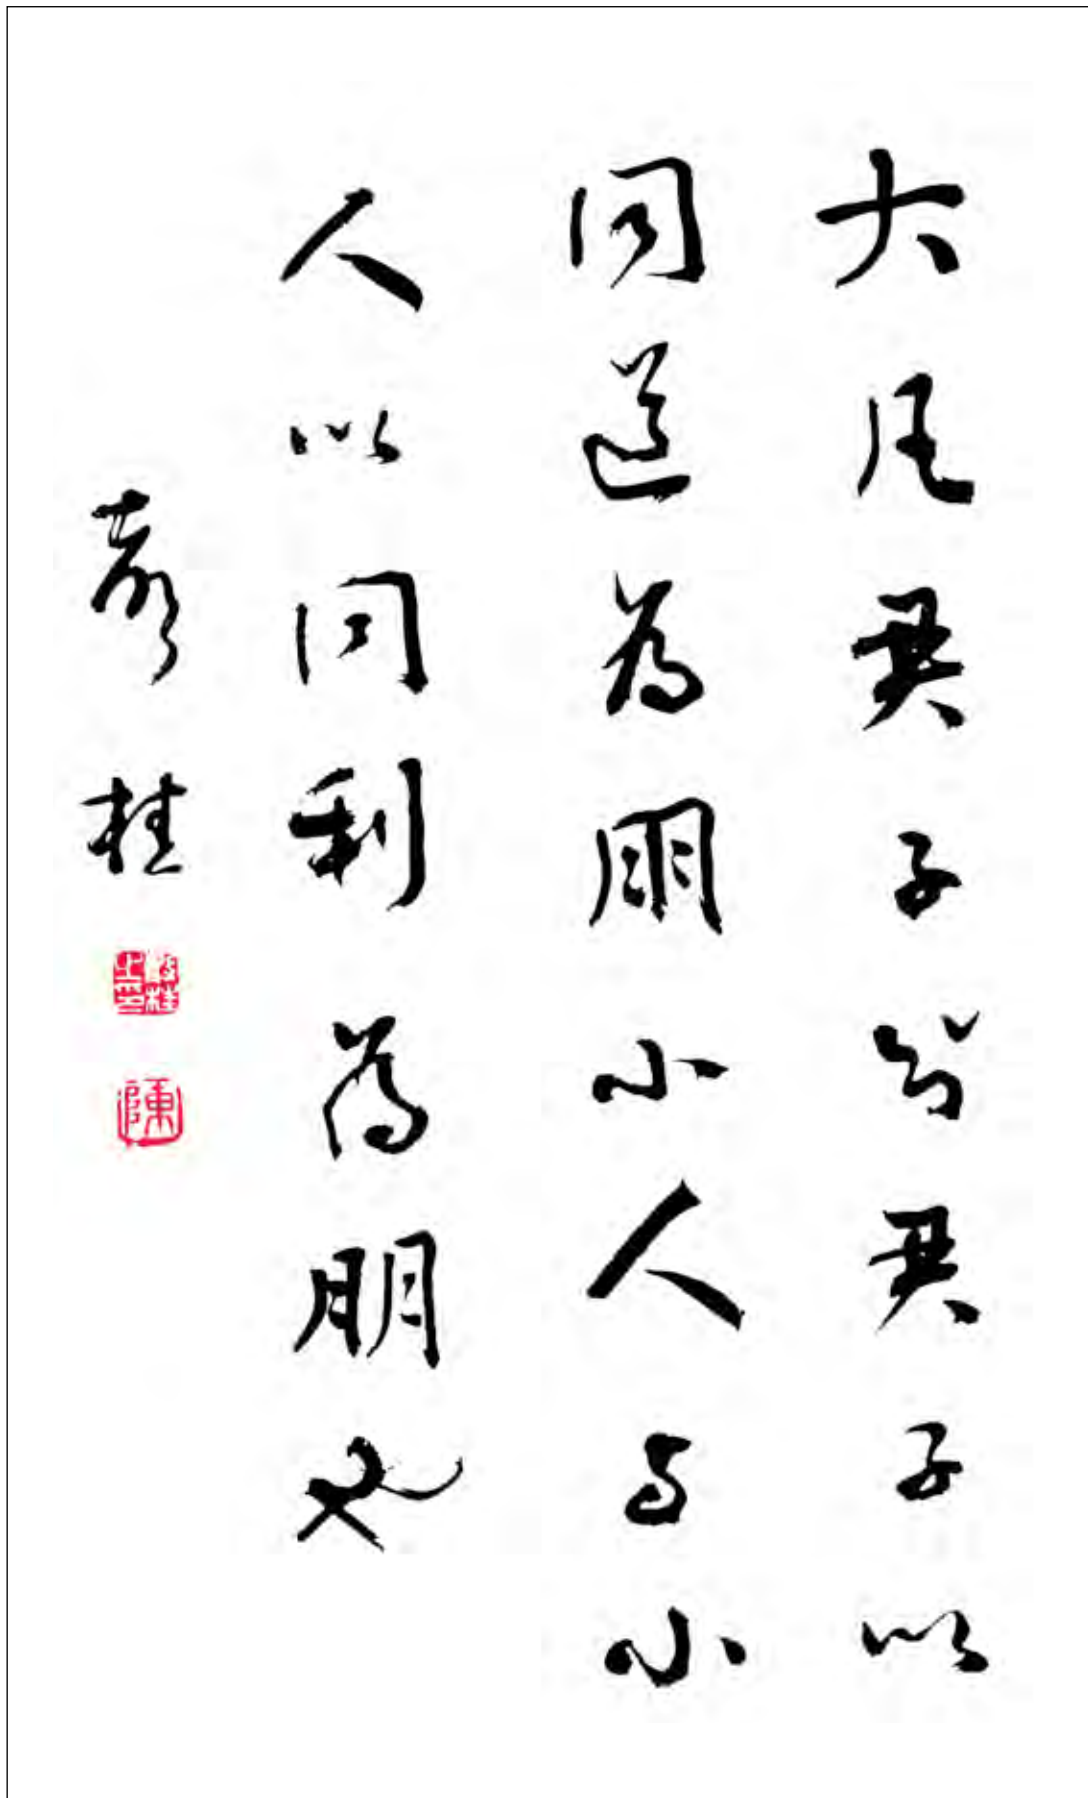 大凡君子與君子以
同道為朋小人与小
人以同利為朋也
桂
陳